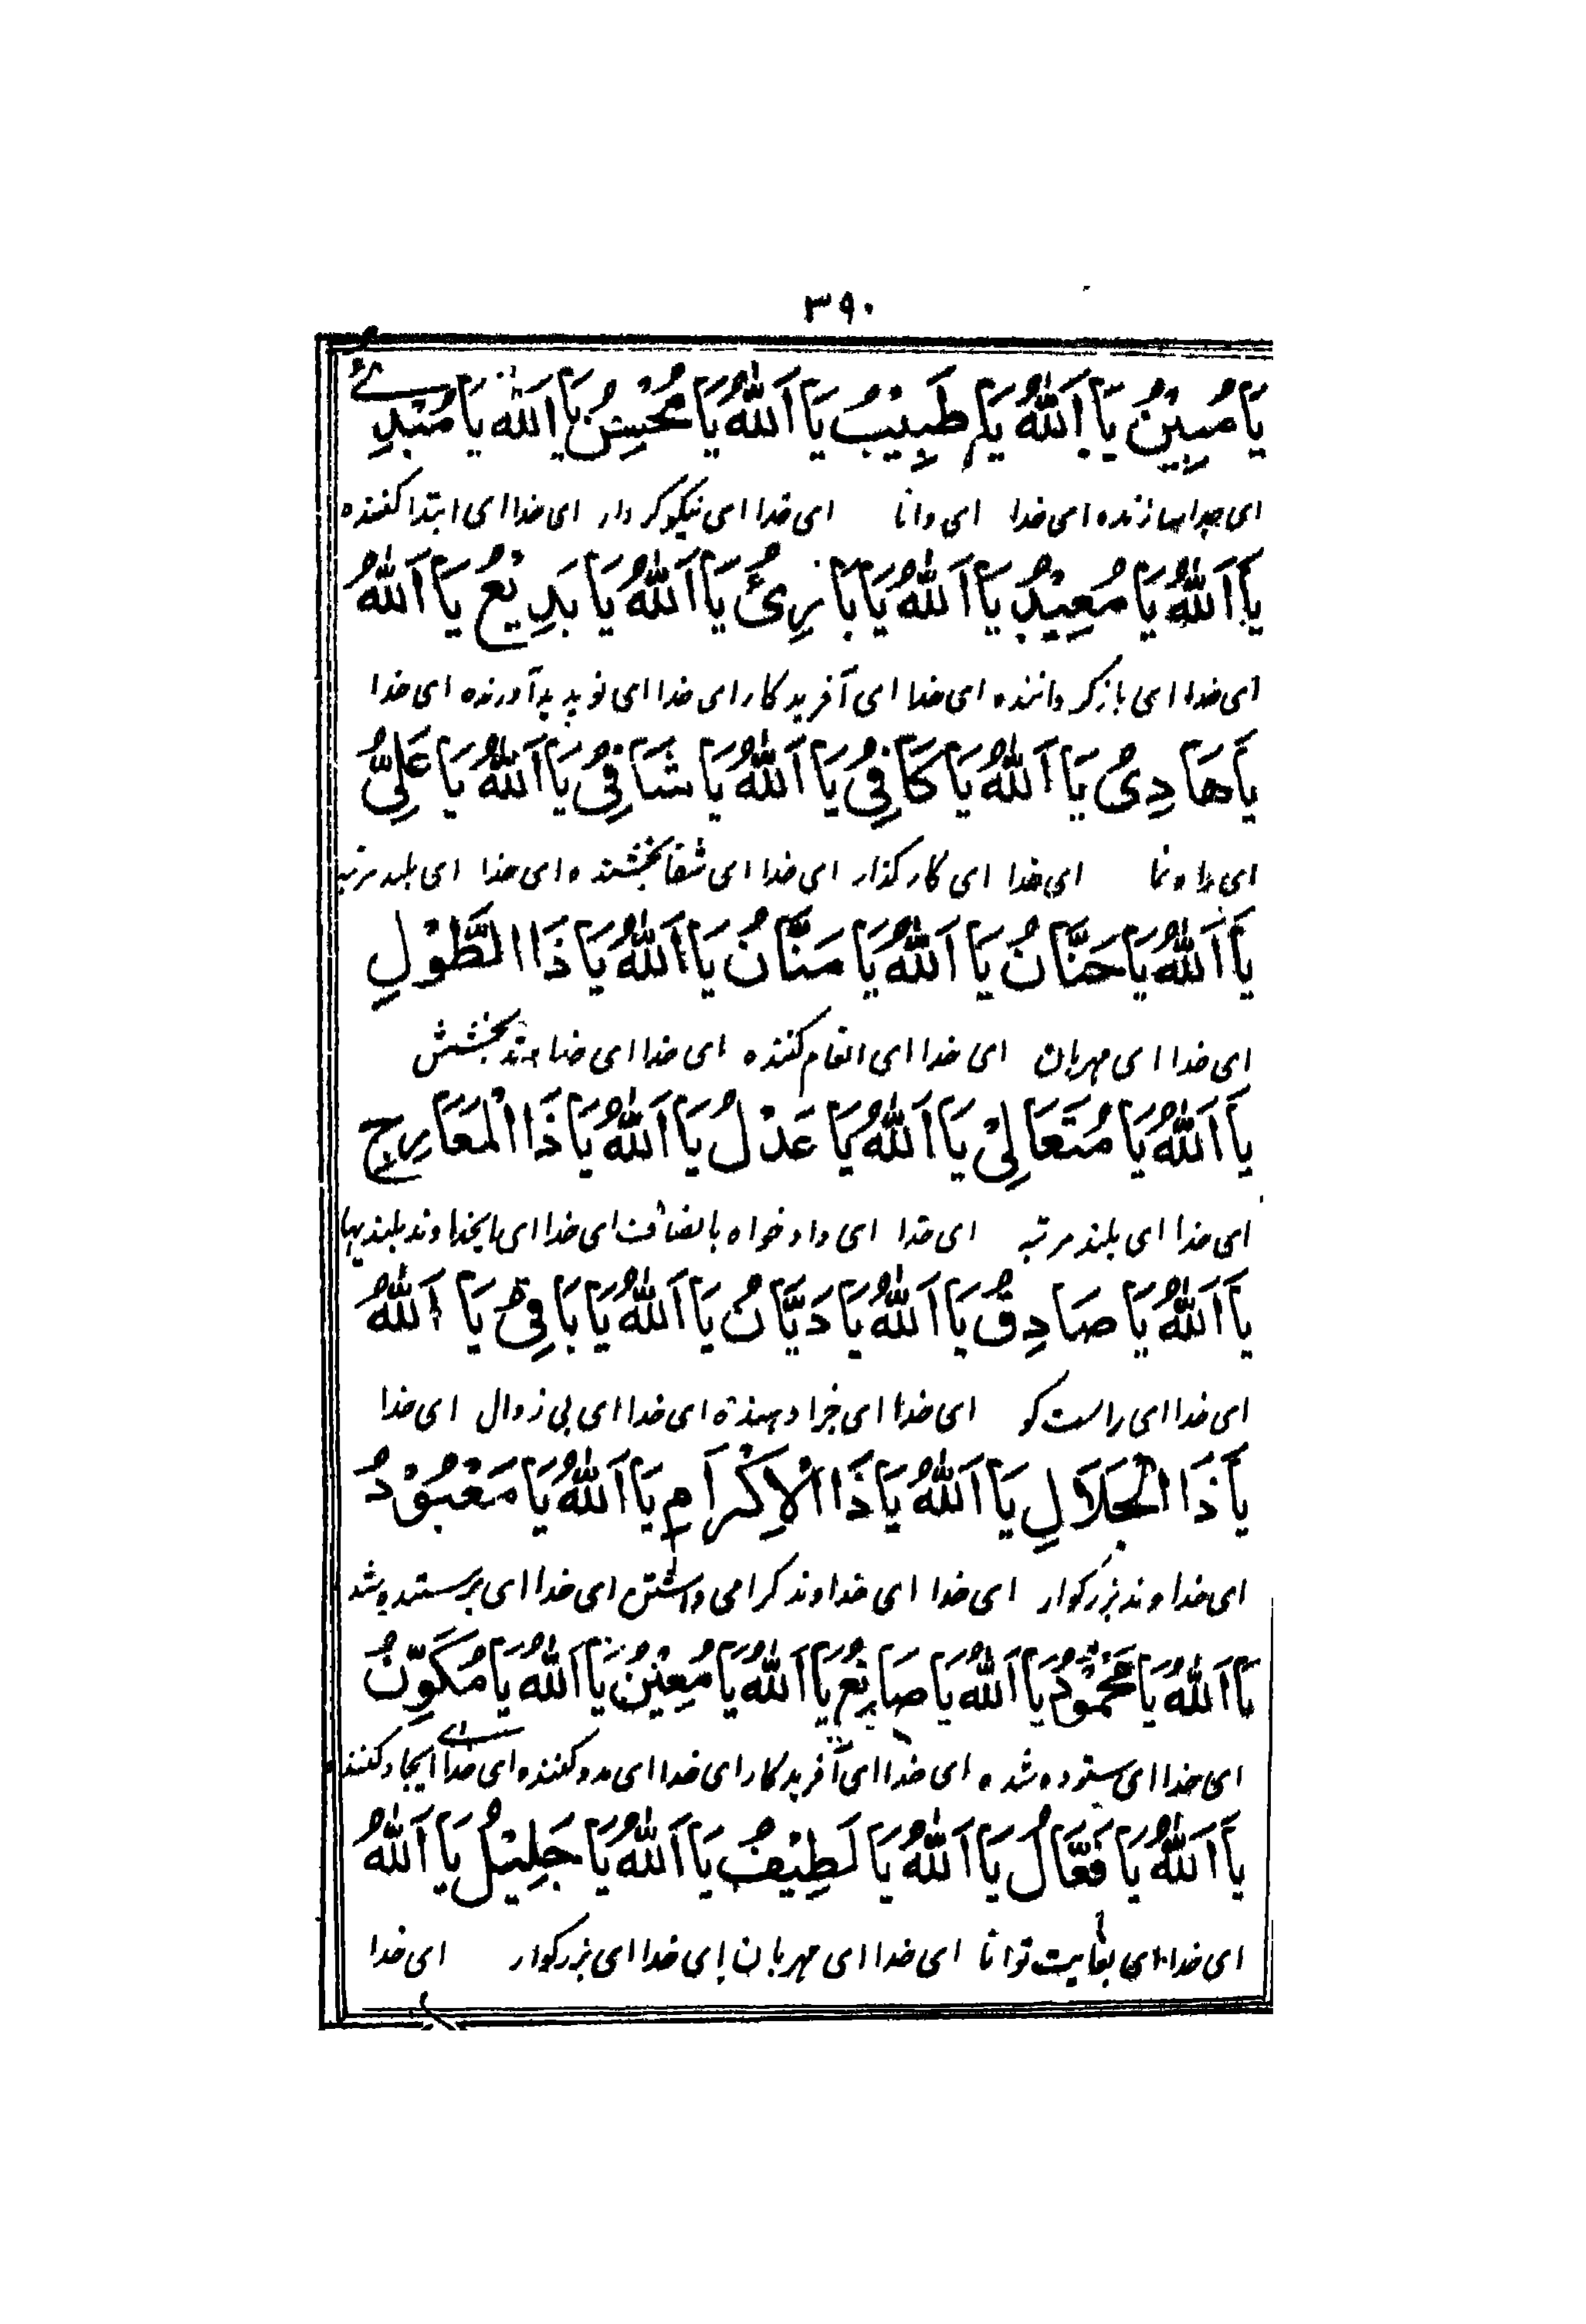 ۳۹۰
يَا مُبِيْنُ يَا اَللّٰهُ يَا طَبِيْبُ يَا اَللّٰهُ يَا مُحْسِنُ يَا اَللّٰهُ يَا مُبْدِئُ
ای جدا سازنده ای خدا ای دانا ای خدا ای نیکو کردار ای خدا ای ابتدا کننده
يَا اَللّٰهُ يَا مُعِيْدُ يَا اَللّٰهُ يَا بَارِئُ يَا اَللّٰهُ يَا بَدِيْعُ يَا اَللّٰهُ
ای خدا ای باز گرداننده ای خدا ای آفریدکار ای خدا ای نو پدید آورنده ای خدا
يَا هَادِیُ يَا اَللّٰهُ يَا كَافِیُ يَا اَللّٰهُ يَا شَافِیُ يَا اَللّٰهُ يَا عَلِیُّ
ای راه نما ای خدا ای کار گذار ای خدا ای شفا بخشنده ای خدا ای بلند مرتبه
يَا اَللّٰهُ يَا حَنَّانُ يَا اَللّٰهُ يَا مَنَّانُ يَا اَللّٰهُ يَا ذَا الطَّوْلِ
ای خدا ای مهربان ای خدا ای انعام کننده ای خدا ای خداوند بخشش
يَا اَللّٰهُ يَا مُتَعَالِیْ يَا اَللّٰهُ يَا عَدْلُ يَا اَللّٰهُ يَا ذَا الْمَعَارِجِ
ای خدا ای بلند مرتبه ای خدا ای داد خواه با ای خدا ای بلندیها
يَا اَللّٰهُ يَا صَادِقُ يَا اَللّٰهُ يَا دَيَّانُ يَا اَللّٰهُ يَا بَاقِیُ يَا اَللّٰهُ
ای خدا ای راست کو ای خدا ای جزا دهنده ای خدا ای بی زوال ای خدا
يَا ذَا الْجَلَالِ يَا اَللّٰهُ يَا ذَا الْاِكْرَامِ يَا اَللّٰهُ يَا مَعْبُوْدُ
ای خداوند بزرکوار ای خدا ای خداوند کرامی داشتن ای خدا ای پرستیده شد
يَا اَللّٰهُ يَا مَحْمُوْدُ يَا اَللّٰهُ يَا صَانِعُ يَا اَللّٰهُ يَا مُعِيْنُ يَا اَللّٰهُ يَا مُكَوِّنُ
ای خدا ای ستوده شده ای خدا ای آفریدکار ای خدا ای مدد کننده ای خدا ای ایجاد کننده
يَا اَللّٰهُ يَا فَعَّالُ يَا اَللّٰهُ يَا لَطِيْفُ يَا اَللّٰهُ يَا جَلِيْلُ يَا اَللّٰهُ
ای خدا ای بغایت توانا ای خدا ای مهربان ای خدا ای بزرکوار ای خدا